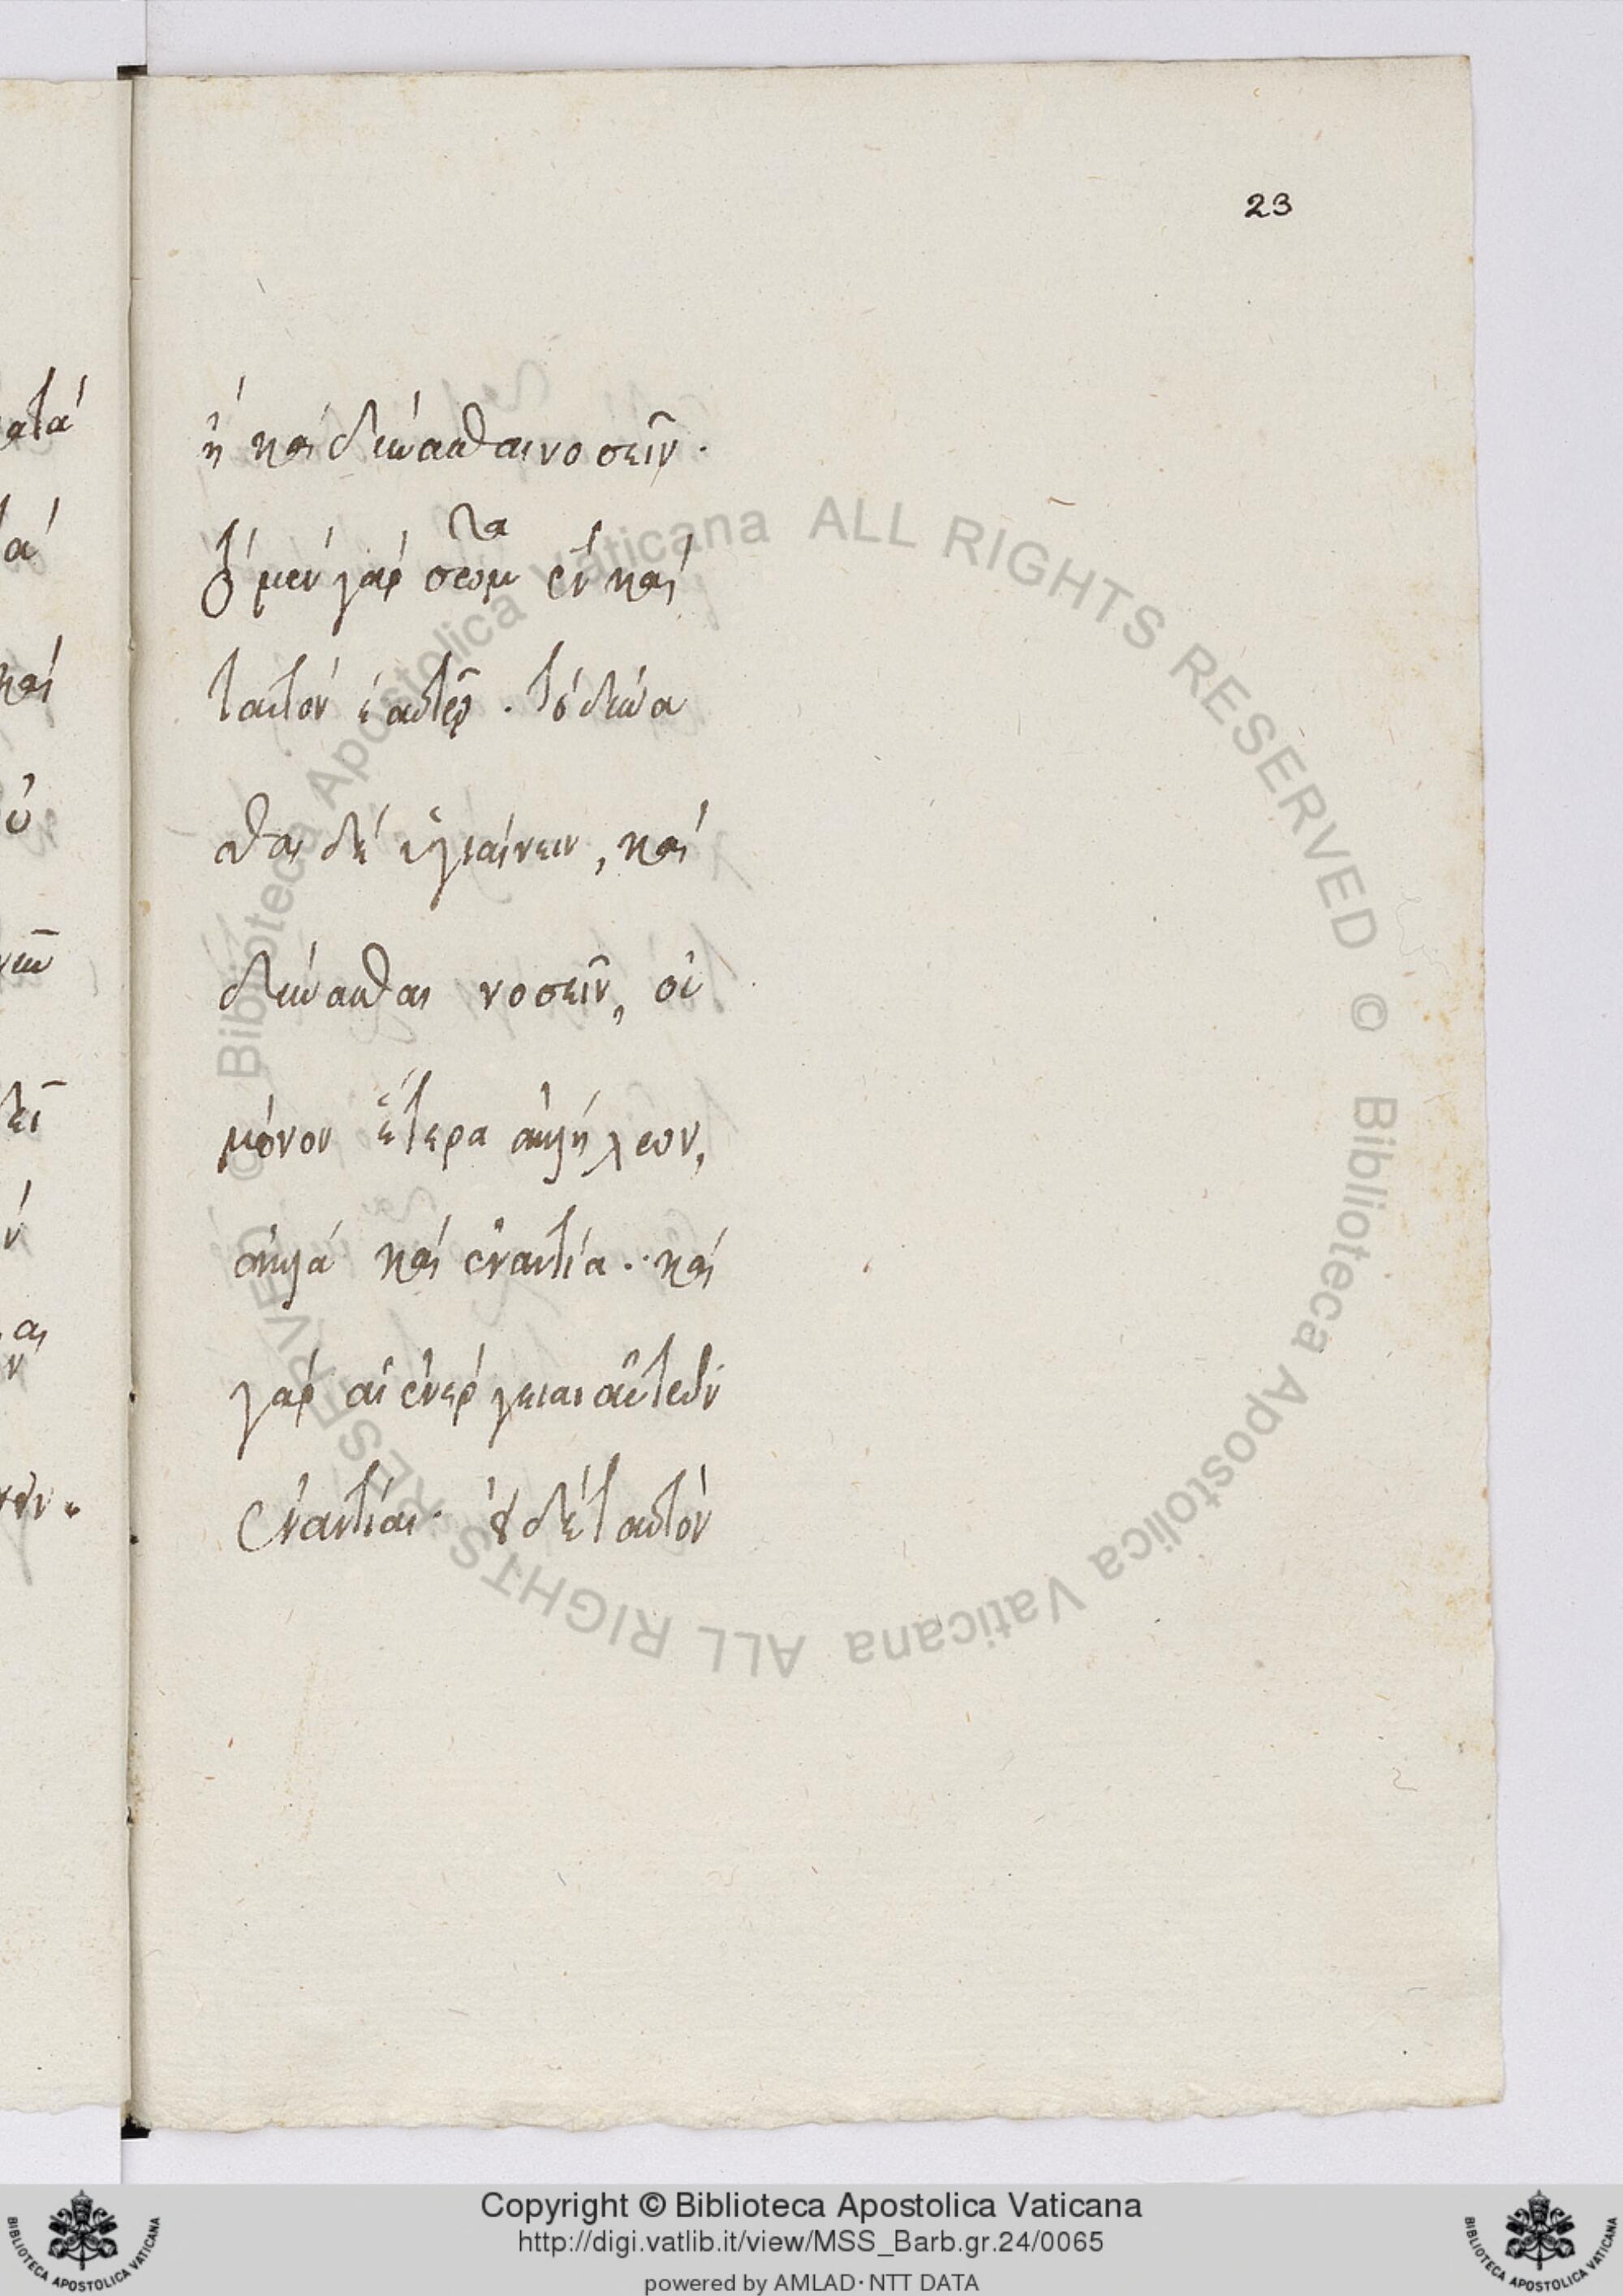 23
ἢ καὶ δύνασθαι νοσεῖν.
τὸ μὲν γὰρ σῶμα ἓν καὶ
ταυτὸν ἑαυτῷ. τὸ δύνα
σθαι δὲ ὑγιαίνειν, καὶ
δύνασθαι νοσεῖν, οὐ
μόνον ἕτερα ἀλλήλων,
ἀλλὰ καὶ ἐναντία. καὶ
γὰρ αἱ ἐνέργειαι αὐτῶν
ἐναντίαι. οὐδὲ ταυτὸν
ατά
ά
καὶ
Biblioteca Apostolica Vaticana ALL RIGHTS RESERVED © Biblioteca Apostolica Vaticana ALL RIGHTS RESERVED ©
Copyright © Biblioteca Apostolica Vaticana
http://digi.vatlib.it/view/MSS_Barb.gr.24/0065
powered by AMLAD·NTT DATA
BIBLIOTECA APOSTOLICA VATICANA
BIBLIOTECA APOSTOLICA VATICANA